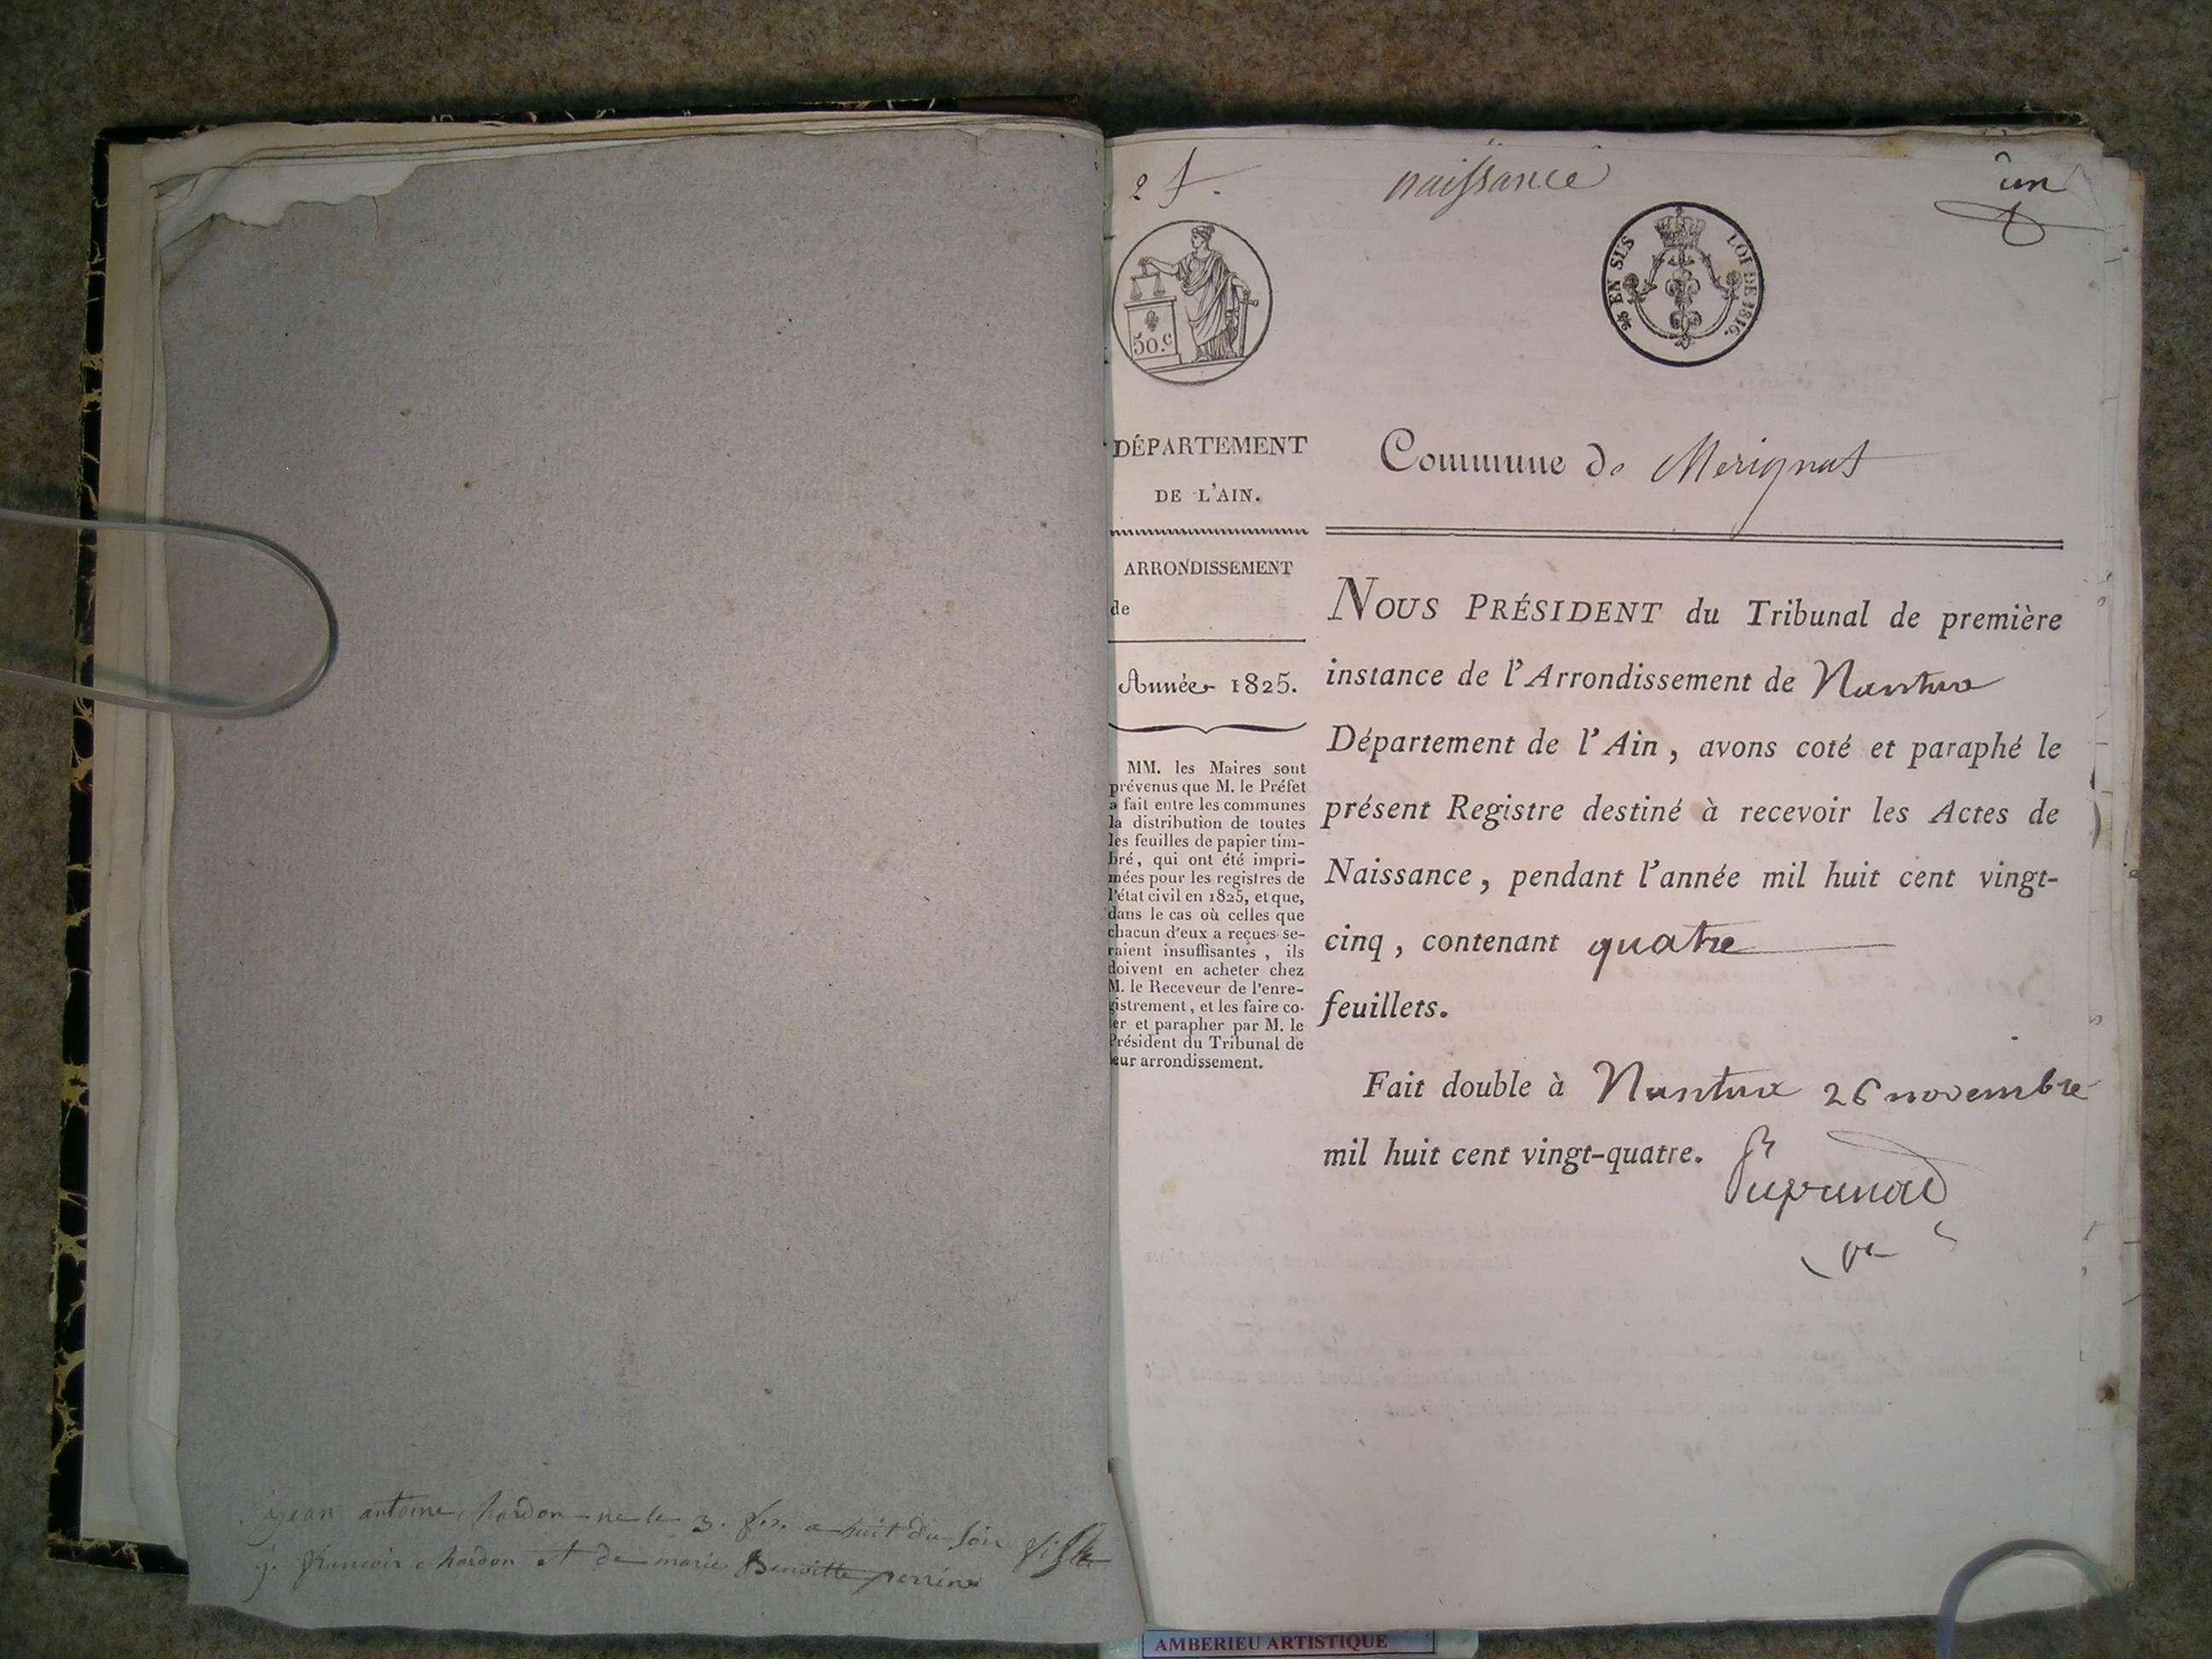 jean antoine chardon né le 3. a huit du soir fils
j. francois chardon et de marie Benoitte perrin
2 f.
naissance
un
50.c
25 EN SUS LOI DE 1816.
DÉPARTEMENT
DE L'AIN.
ARRONDISSEMENT
de
Année 1825.
MM. les Maires sont
prévenus que M. le Préfet
a fait entre les communes
la distribution de toutes
les feuilles de papier tim-
bré, qui ont été impri-
mées pour les registres de
l'état civil en 1825, et que,
dans le cas où celles que
chacun d'eux a reçues se-
raient insuffisantes, ils
doivent en acheter chez
M. le Receveur de l'enre-
gistrement, et les faire co-
ter et parapher par M. le
Président du Tribunal de
leur arrondissement.
Commune de Merignat
NOUS PRÉSIDENT du Tribunal de première
instance de l'Arrondissement de Nantua
Département de l'Ain, avons coté et paraphé le
présent Registre destiné à recevoir les Actes de
Naissance, pendant l'année mil huit cent vingt-
cinq, contenant quatre
feuillets.
Fait double à Nantua 26 novembre
mil huit cent vingt-quatre.
AMBERIEU ARTISTIQUE